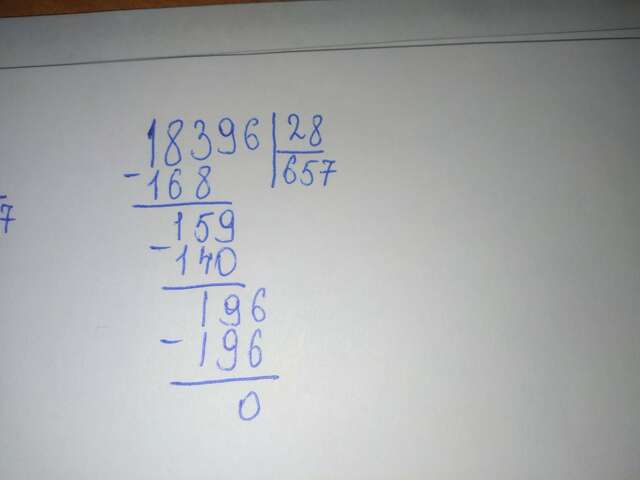 18396 | 28
-168 | 657
159
-140
196
-196
0
7